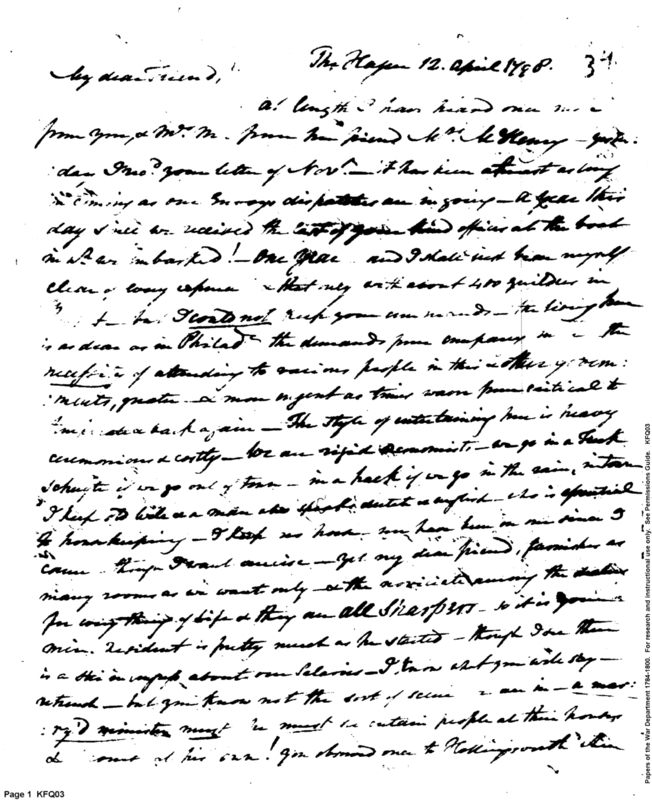 The Hague 12. April 1798.
My dear Friend,
At length I have heard once
from you, & Mrs. M. from her friend Mrs. McHenry – yester:
day I recd. your letter of Novr. – it has been almost as long
coming as our Envoys dispatches are in going – A year this
day since we received the last of your kind offices at the boat
in wh. we embarked! – One year and I shall just bear myself
clear of every expence & that only with about 400 guilders in
but I could not keep your commands – the living here
is as dear as in Philada. the demands from company the
necessity of attending to various people in this & other govern:
ments, greater & more urgent as times warn from critical to
back again – The style of entertaining here is heavy
ceremonious & costly – We are rigid economists – we go in a Treck
Schuyte if we go out of town – in a hack if we go in the rain, in town
I keep a man who speaks dutch & english – who is essential
to housekeeping – I keep no horse nor have been on one since I
came though I want exercise – yet my dear friend, furnishes as
many rooms as we want only – & the among the dealers
for every thing of life & they are all Sharpers – so it is your
Min. Resident is pretty much as he started – though I see there
is a in congress about our Salaries – I know what you will say –
retrench – but you know not the sort of scene I am in – a mar:
ry'd minister must he must see certain people at their houses
& at his own! you observed once to Hollingsworth
Page 1 KFQ03
Papers of the War Department 1784-1800. For research and instructional use only. See Permissions Guide. KFQ03